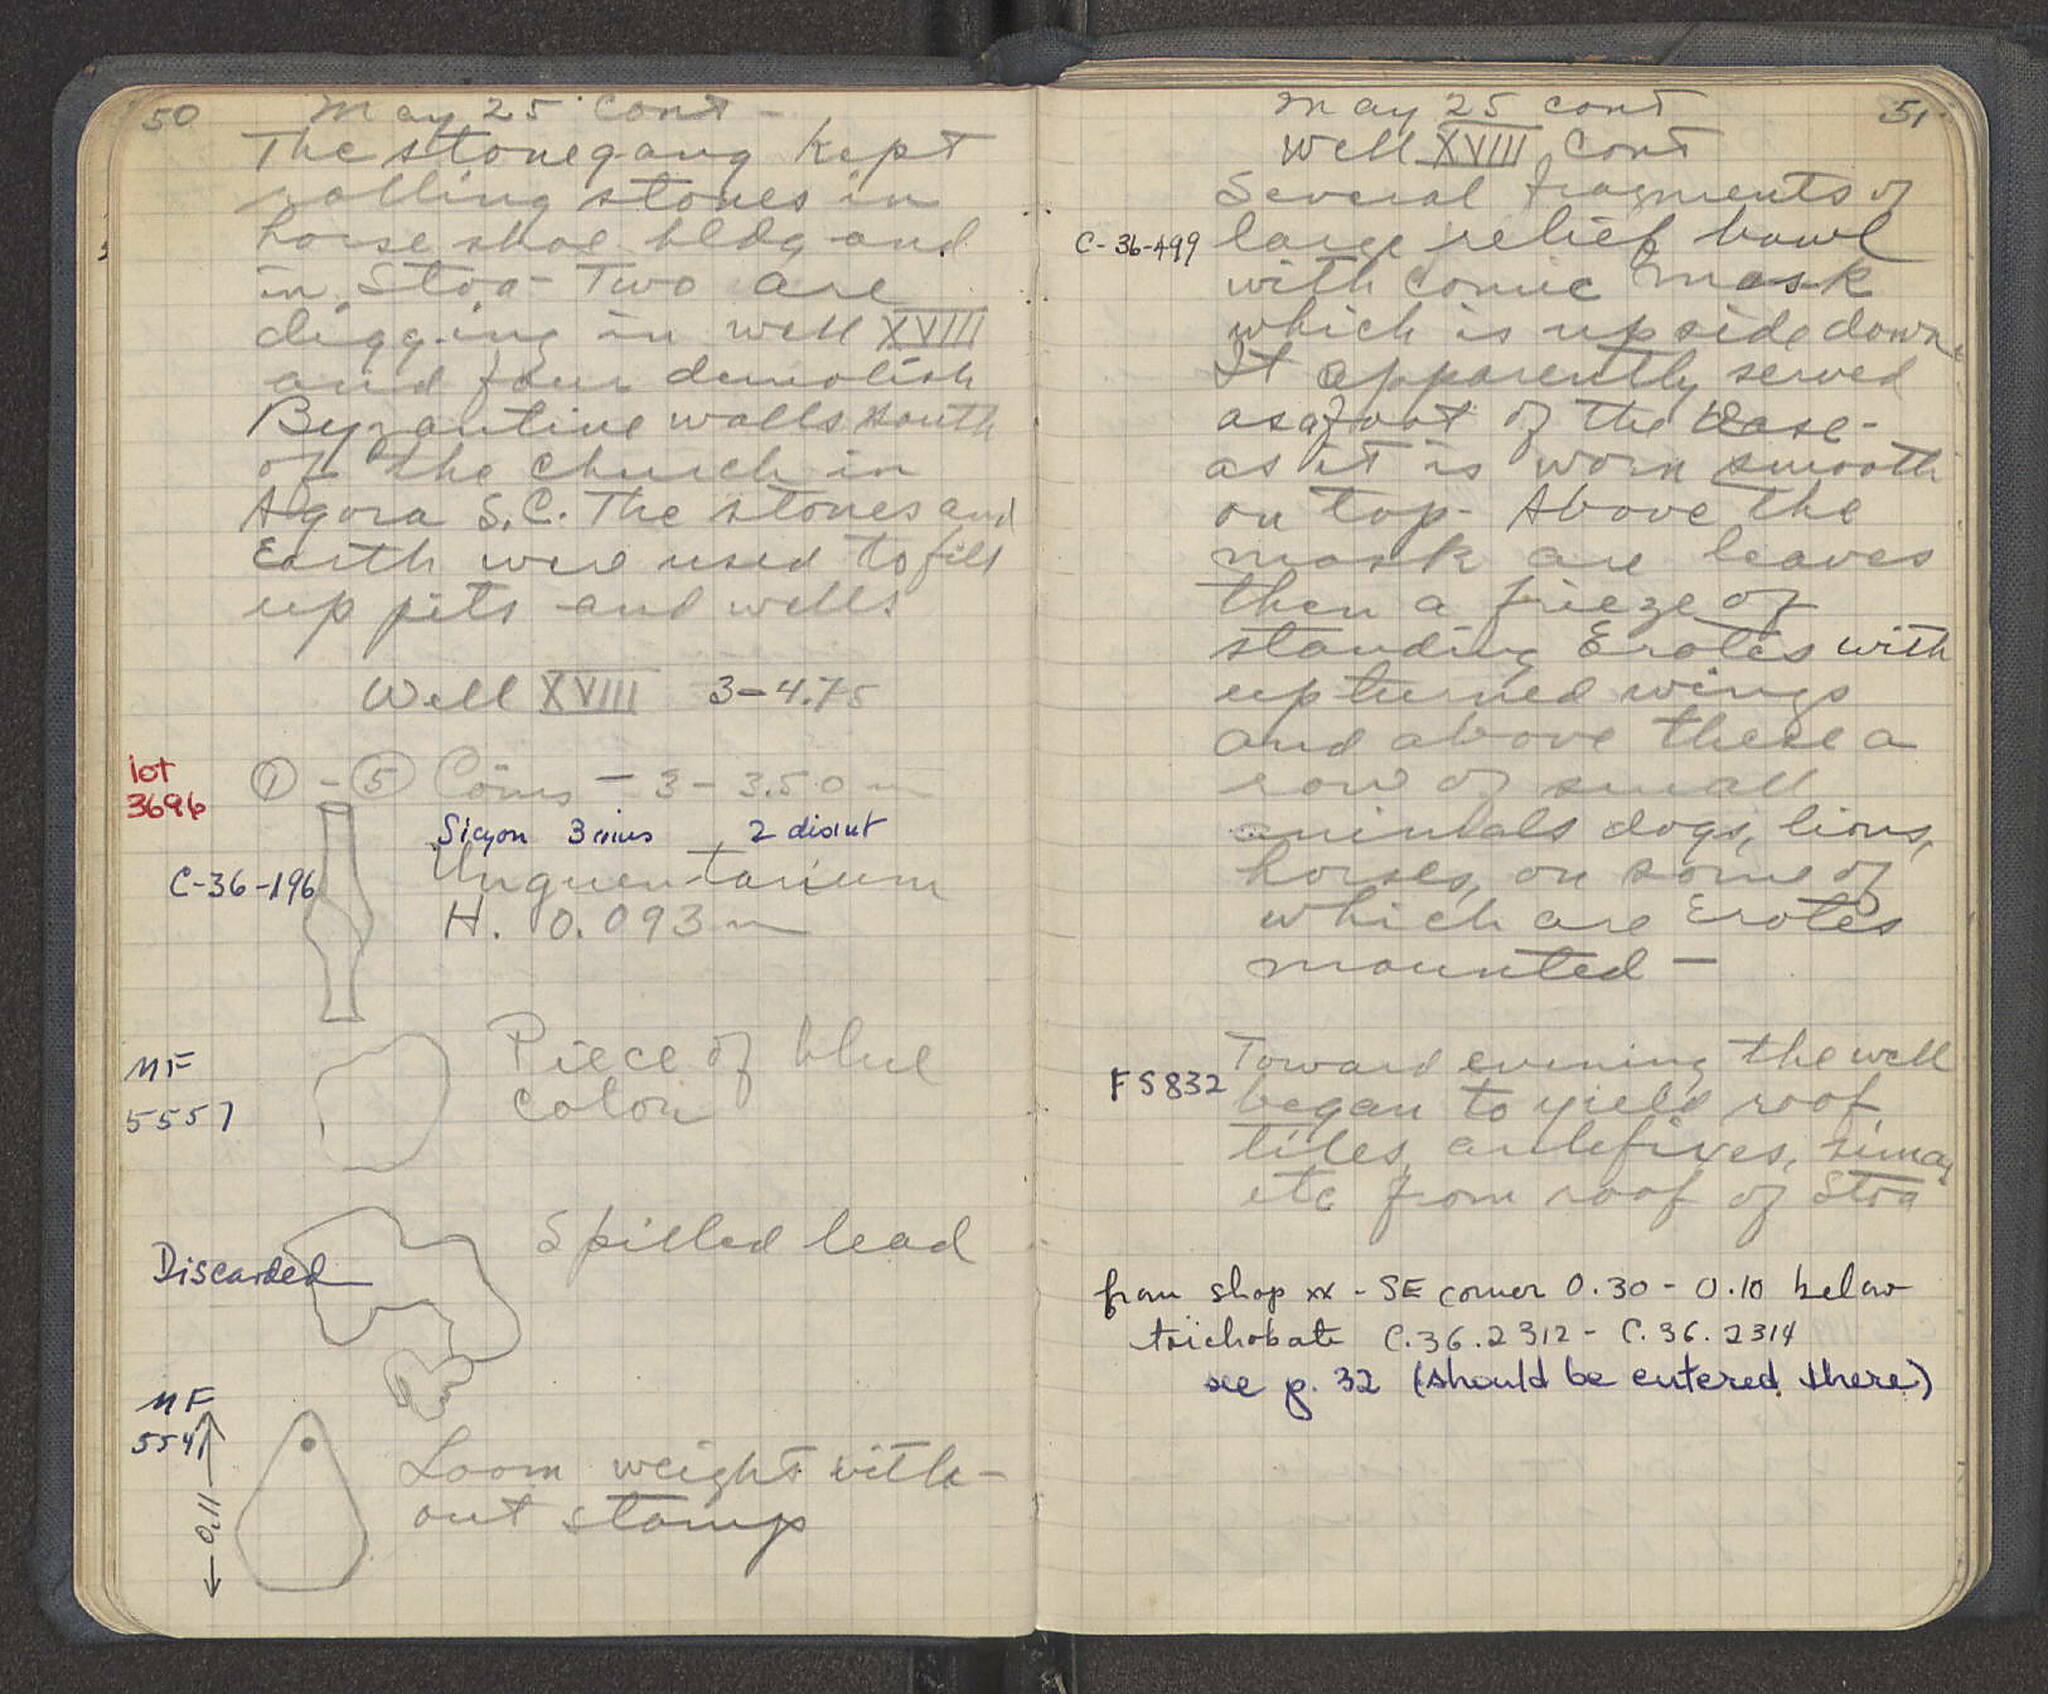 50
May 25 cont -
The stonegang kept
rolling stones in
horse shoe bldg and
in Stoa - Two are
digging in well XVIII
and four demolish
Byzantine walls south
of the church in
Agora S.C. The stones and
Earth were used to fill
up pits and wells
Well XVIII 3-4.75
lot
3696
① - ⑤ Coins - 3 - 3.50 m
Sicyon 3 2 disint
C-36-196
Unguentarium
H. 0.093 m
MF
5557
Piece of blue
color
Discarded
Spilled lead
MF
554
0.11
Loom weight with-
out stamp
51
May 25 cont
Well XVIII Cont
Several fragments of
C-36-499 large relief bowl
with comic mask
which is upside down
It apparently served
as a foot of the vase -
as it is worn smooth
on top - Above the
mask are leaves
then a frieze of
standing Erotes with
upturned wings
and above these a
row of small
animals dogs, lions,
horses, on some of
which are Erotes
mounted -
Toward evening the well
FS832 began to yield roof
tiles, antefixes, simas,
etc from roof of Stoa
from shop xx - SE corner 0.30 - 0.10 below
toichobate C.36.2312 - C.36.2314
see p. 32 (should be entered there)